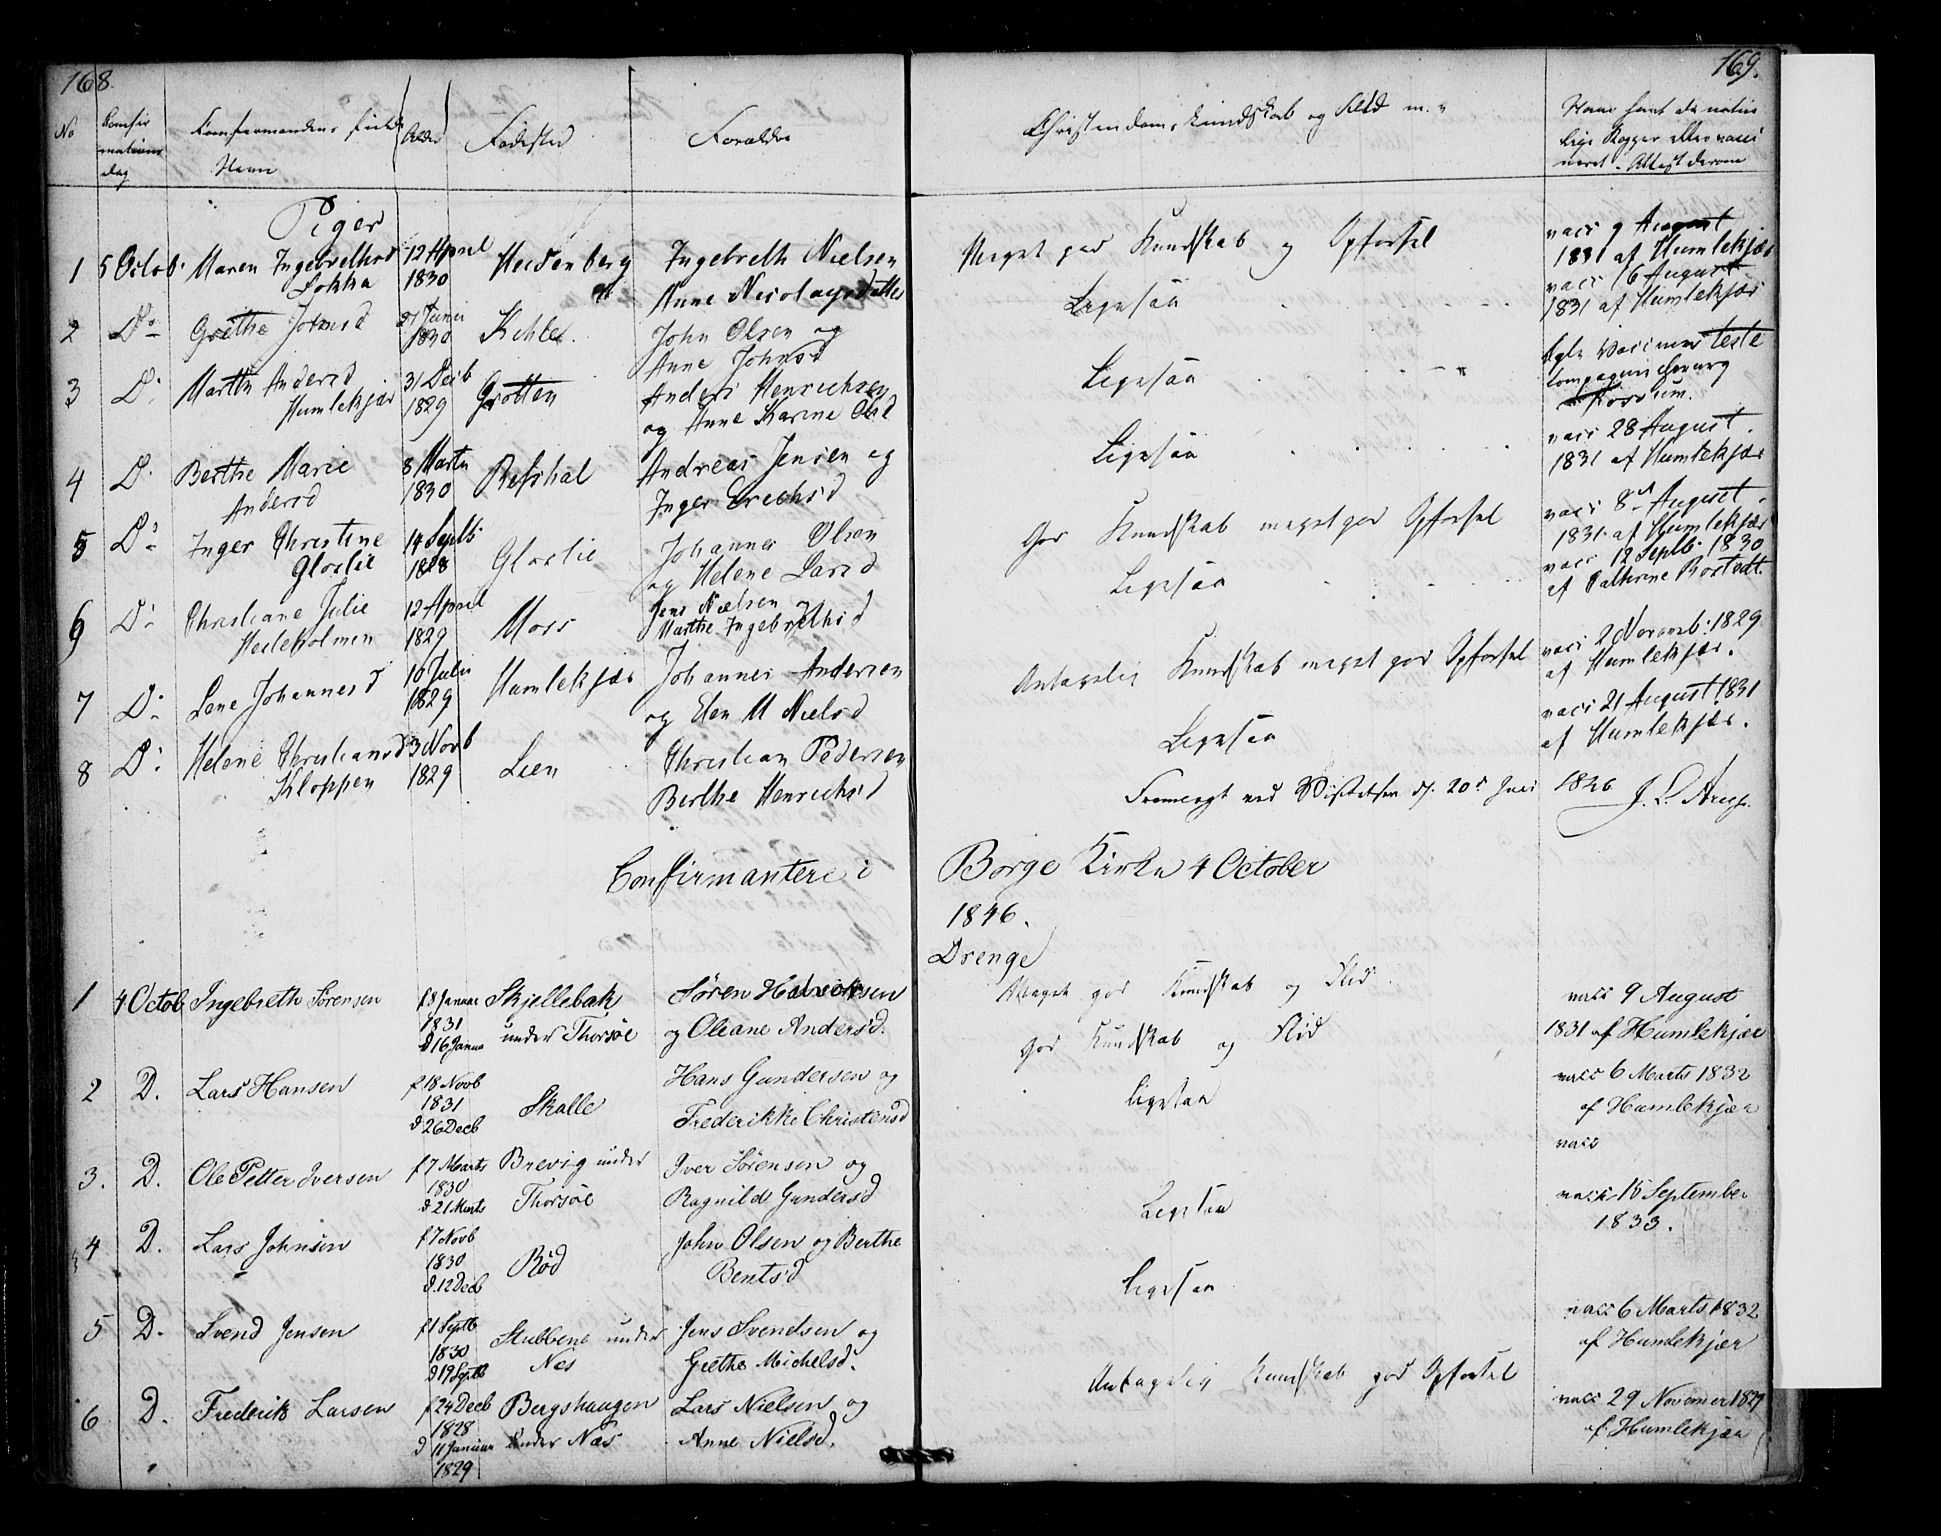 168.
No
Confir
mations
dag
Confirmandens fulde
Navn
Alder
Fødested
Forældre
Piger
1 5 Octob. Maren Ingebrethsd 12 April Heidenberg Ingebreth Nielsen
Lokka 1830 Anne Nicolaysdatter
2 Do Grethe Johnsd 21 Juni Kihle John Olsen og
1830 Anne Johnsd
3 D. Marthe Andersd 31 Decb Grotten Anders Henrichsen
Humlekjær 1829 og Anne Karine Olsd
4 D. Berthe Marie 8 Marts Refshal Andreas Jensen og
Andersd 1830 Inger Erichsd
5 Do Inger Christine 14 Septb. Glorlie Johannes Olsen
Glorlie og Helene Larsd
6 D. Christiane Julie 12 April Moss Jens Nielsen og
Hesleholmen 1829 Marthe Ingebrethsd
7 D. Lene Johannesd 10 Julii Humlekjær Johannes Andersen
1829 og Elen M Nielsd
8 D. Helene Christiansd 3 Novb Lien Christian Pedersen
Kloppen 1829 Berthe Henrichsd
Confirmantere i
1 4 Octob Ingebreth Sørensen f 8 Januar Skjellebak Søren Halvorsen
1831 under Thorsøe og Oleane Andersd.
d 16 Janua
2 D. Lars Hansen f 18 Novb Skalle Hans Gundersen og
1831 Frederikke Christensd
d 26 Decb
3. D. Ole Petter Iversen f 7 Marts Brevig under Iver Sørensen og
1830 Thorsøe Ragnilde Gundersd
d 21 Marts
4 D. Lars Johnsen f 7 Novb Rød John Olsen og Berthe
1830 Bentsd
d. 12 Decb
5 D. Svend Jensen f 1 Septb Stubbene under Jens Svendsen og
1830 Nes Grethe Michelsd.
d 19 Septb
6 D. Frederik Larsen f 24 Decb Bergshaugen Lars Nielsen og
1828 under Næs Anne Nielsd.
d 11 Januar
1829
169.
Christendoms kundskab og Flid m.v.
Have havt de natur
lige Kopper eller vacci
neret. Attest derom
Meget god Kundskab og Opførsel vacc 9 August
1831 af Humlekjær
Ligesaa vacc 16 August
1831 af Humlekjær
Ligesaa teste
Compagnie chirurg
Ligesaa vacc 28 August
1831 af Humlekjær
God Kundskab meget god Opførsel vacc 8de August
1831 af Humlekjær
Ligesaa vacc 12 Septb. 1830
af Cathrine
Antagelig Kundskab meget god Opførsel vacc 2 Novemb. 1829
af Humlekjær.
Ligesaa vacc 21 August 1831
af Humlekjær.
Fremlagt ved Visitatsen d. 20de Juni 1846 J. L. Arup.
Borge Kirke 4 October
1846.
Drenge
Meget god Kundskab og Flid vacc 9 August
1831 af Humlekjær
God Kundskab og Flid vacc 6 Marts 1832
af Humlekjær
Ligesaa vacc
Ligesaa vacc 15 September
1833.
Ligesaa vacc 6 Marts 1832
af Humlekjær
Antagelig Kundskab god Opførsel vacc 29 Novemer 1829
af Humlekjær